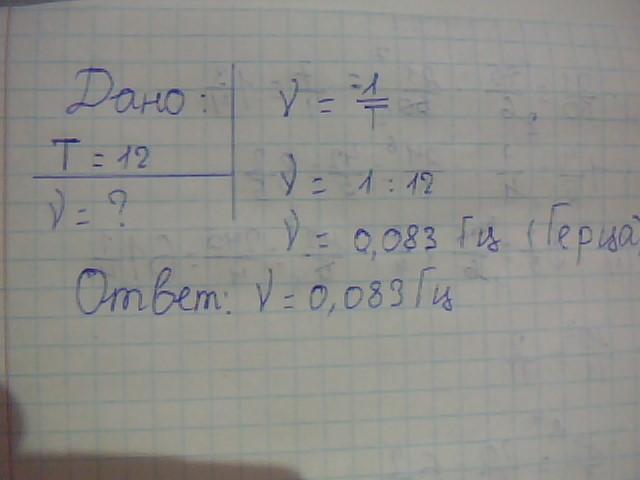 Дано:
T = 12
ν = ?
ν = 1/T
ν = 1 : 12
ν = 0,083 Гц (Герца)
Ответ: ν = 0,083 Гц